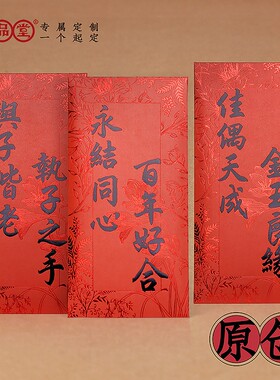 品堂®
专属定制
一个起定
執子之手
與子皆老
百年好合
永結同心
金玉良緣
佳偶天成
原创